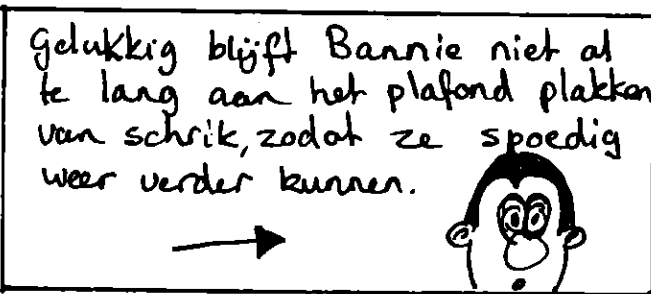 Gelukkig blijft Bannie niet al
te lang aan het plafond plakken
van schrik, zodat ze spoedig
weer verder kunnen.